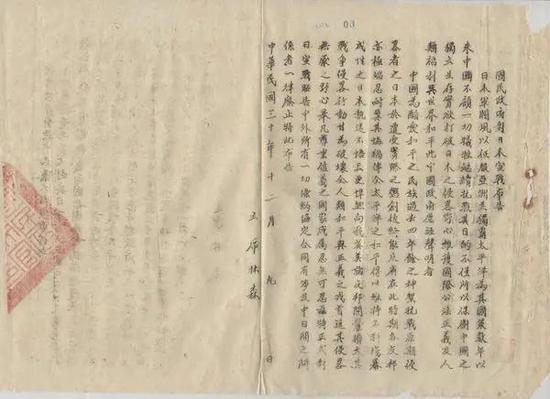 03
國民政府對日本宣戰布告
日本軍閥夙以征服亞洲並獨霸太平洋為其國策數年以
來中國不顧一切犧牲繼續抗戰其目的不僅所以保衛中國之
獨立生存實欲打破日本之侵略野心維護國際公法正義及人
類福利與世界和平此中國政府屢經聲明者
中國為酷愛和平之民族過去四年餘之神聖抗戰原期侵
略者之日本於遭受實際之懲創後終能反省在此時期各友邦
亦極端忍耐冀其悔禍俾全太平洋之和平得以維持不料殘暴
成性之日本執迷不悟且更悍然向我英美諸友邦開釁擴大其
戰爭侵略行動甘為破壞全人類和平與正義之戎首逞其侵略
無厭之野心舉凡尊重信義之國家咸屬忍無可忍茲特正式對
日宣戰昭告中外所有一切條約協定合同有涉及中日間之關
係者一律廢止特此布告
主席林森
中華民國三十年十二月九日